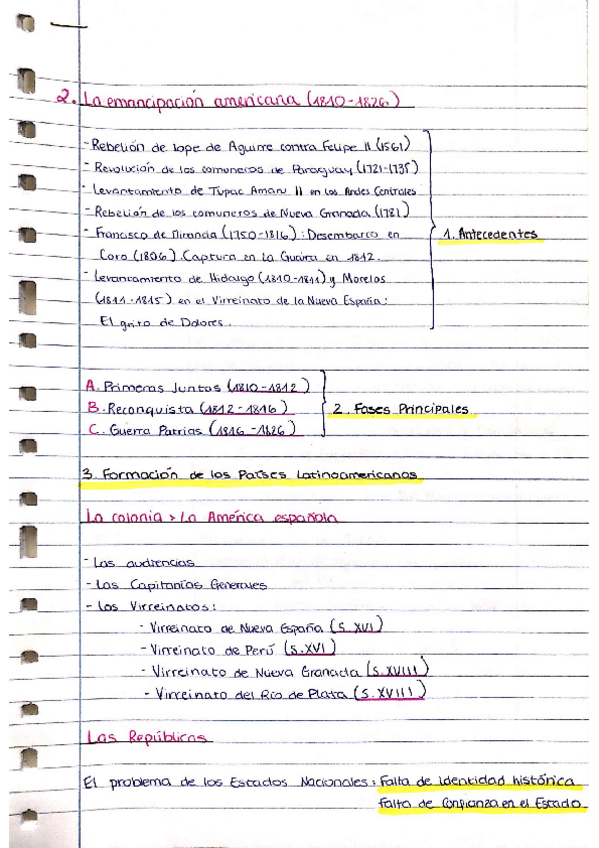 2. La emancipación americana (1810-1826)
- Rebelión de lope de Aguirre contra Felipe II (1561)
- Revolución de los comuneros de Paraguay (1721-1735)
- Levantamiento de Tupac Amaru II en los Andes Centrales
- Rebelión de los comuneros de Nueva Granada (1781)
- Francisco de Miranda (1750-1816): Desembarco en
Coro (1806). Captura en La Guaira en 1812.
- Levantamiento de Hidalgo (1810-1811) y Morelos
(1811-1815) en el Virreinato de la Nueva España:
El grito de Dolores.
1. Antecedentes
A. Primeras Juntas (1810-1812)
B. Reconquista (1812-1816)
C. Guerra Patrias (1816-1826)
2. Fases Principales
3. Formación de los Países Latinoamericanos
La colonia > La América española
- Las audiencias
- Las Capitanías Generales
- Los Virreinatos:
- Virreinato de Nueva España (S.XVI)
- Virreinato de Perú (S.XVI)
- Virreinato de Nueva Granada (S.XVIII)
- Virreinato del Río de Plata (S.XVIII)
Las Repúblicas
El problema de los Estados Nacionales: Falta de identidad histórica
Falta de Confianza en el Estado